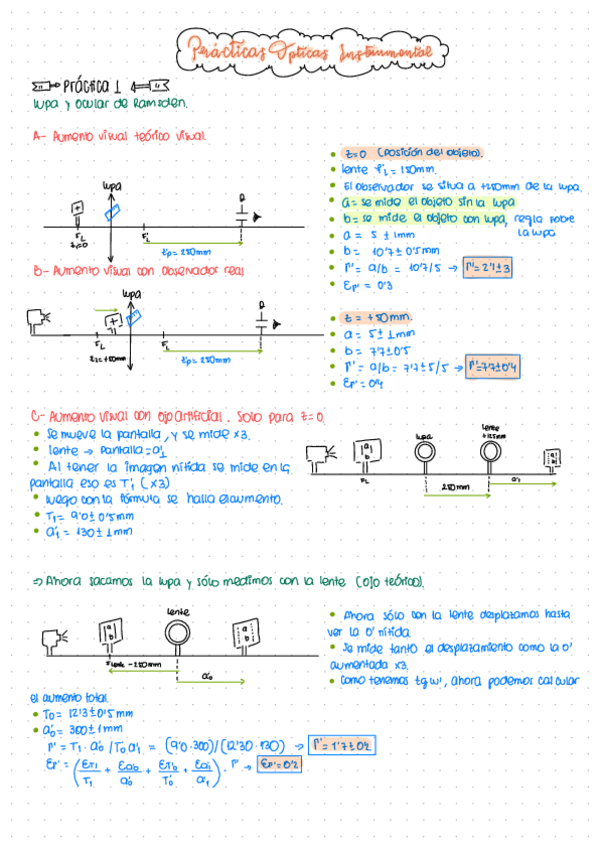 Prácticas Ópticas Instrumental
Práctica 1
Lupa y Ocular de Ramsden.
A- Aumento visual teórico visual.
lupa
F'L
t'p = 250mm
z=0 (posición del objeto).
lente f'L = 150mm.
El observador se situa a +250mm de la lupa.
a = se mide el objeto sin la lupa
b = se mide el objeto con lupa, regla sobre
la lupa
a = 5 ± 1mm
b = 10'7 ± 0'5mm
Γ' = a/b = 10'7/5 → Γ' = 2'1 ± 3
EΓ' = 0'3
B- Aumento visual con observador real
lupa
FL
F'L
t'p = 250mm
z = +50mm.
a = 5 ± 1mm
b = 7'7 ± 0'5
Γ' = a/b = 7'7 ± 5/5 → Γ' = 7'7 ± 0'4
EΓ' = 0'4
C- Aumento visual con ojo artificial. Solo para z=0.
Se mueve la pantalla, y se mide x3.
lente → pantalla = a'1
Al tener la imagen nítida se mide en la
pantalla eso es T'1 (x3)
Luego con la fórmula se halla el aumento.
T1 = 9'0 ± 0'5mm
a'1 = 130 ± 1mm
a
b
FL
lupa
250mm
lente
+125mm
a'1
a
b
⇒ Ahora sacamos la lupa y sólo medimos con la lente (ojo teórico).
a
b
lente
a
b
Flente - 250mm
a'0
Ahora sólo con la lente desplazamos hasta
ver la O' nítida
Se mide tanto el desplazamiento como la O'
aumentada x3.
Como tenemos tg w', ahora podemos calcular
el aumento total.
T0 = 12'3 ± 0'5mm
a'0 = 300 ± 1mm
Γ' = T1 · a'0 / T0 a'1 = (9'0 · 300)/(12'30 · 130) → Γ' = 1'7 ± 0'2
EΓ' = (ET1/T1 + Ea'0/a'0 + ET'0/T'0 + Ea'1/a'1) · Γ' → EΓ' = 0'2